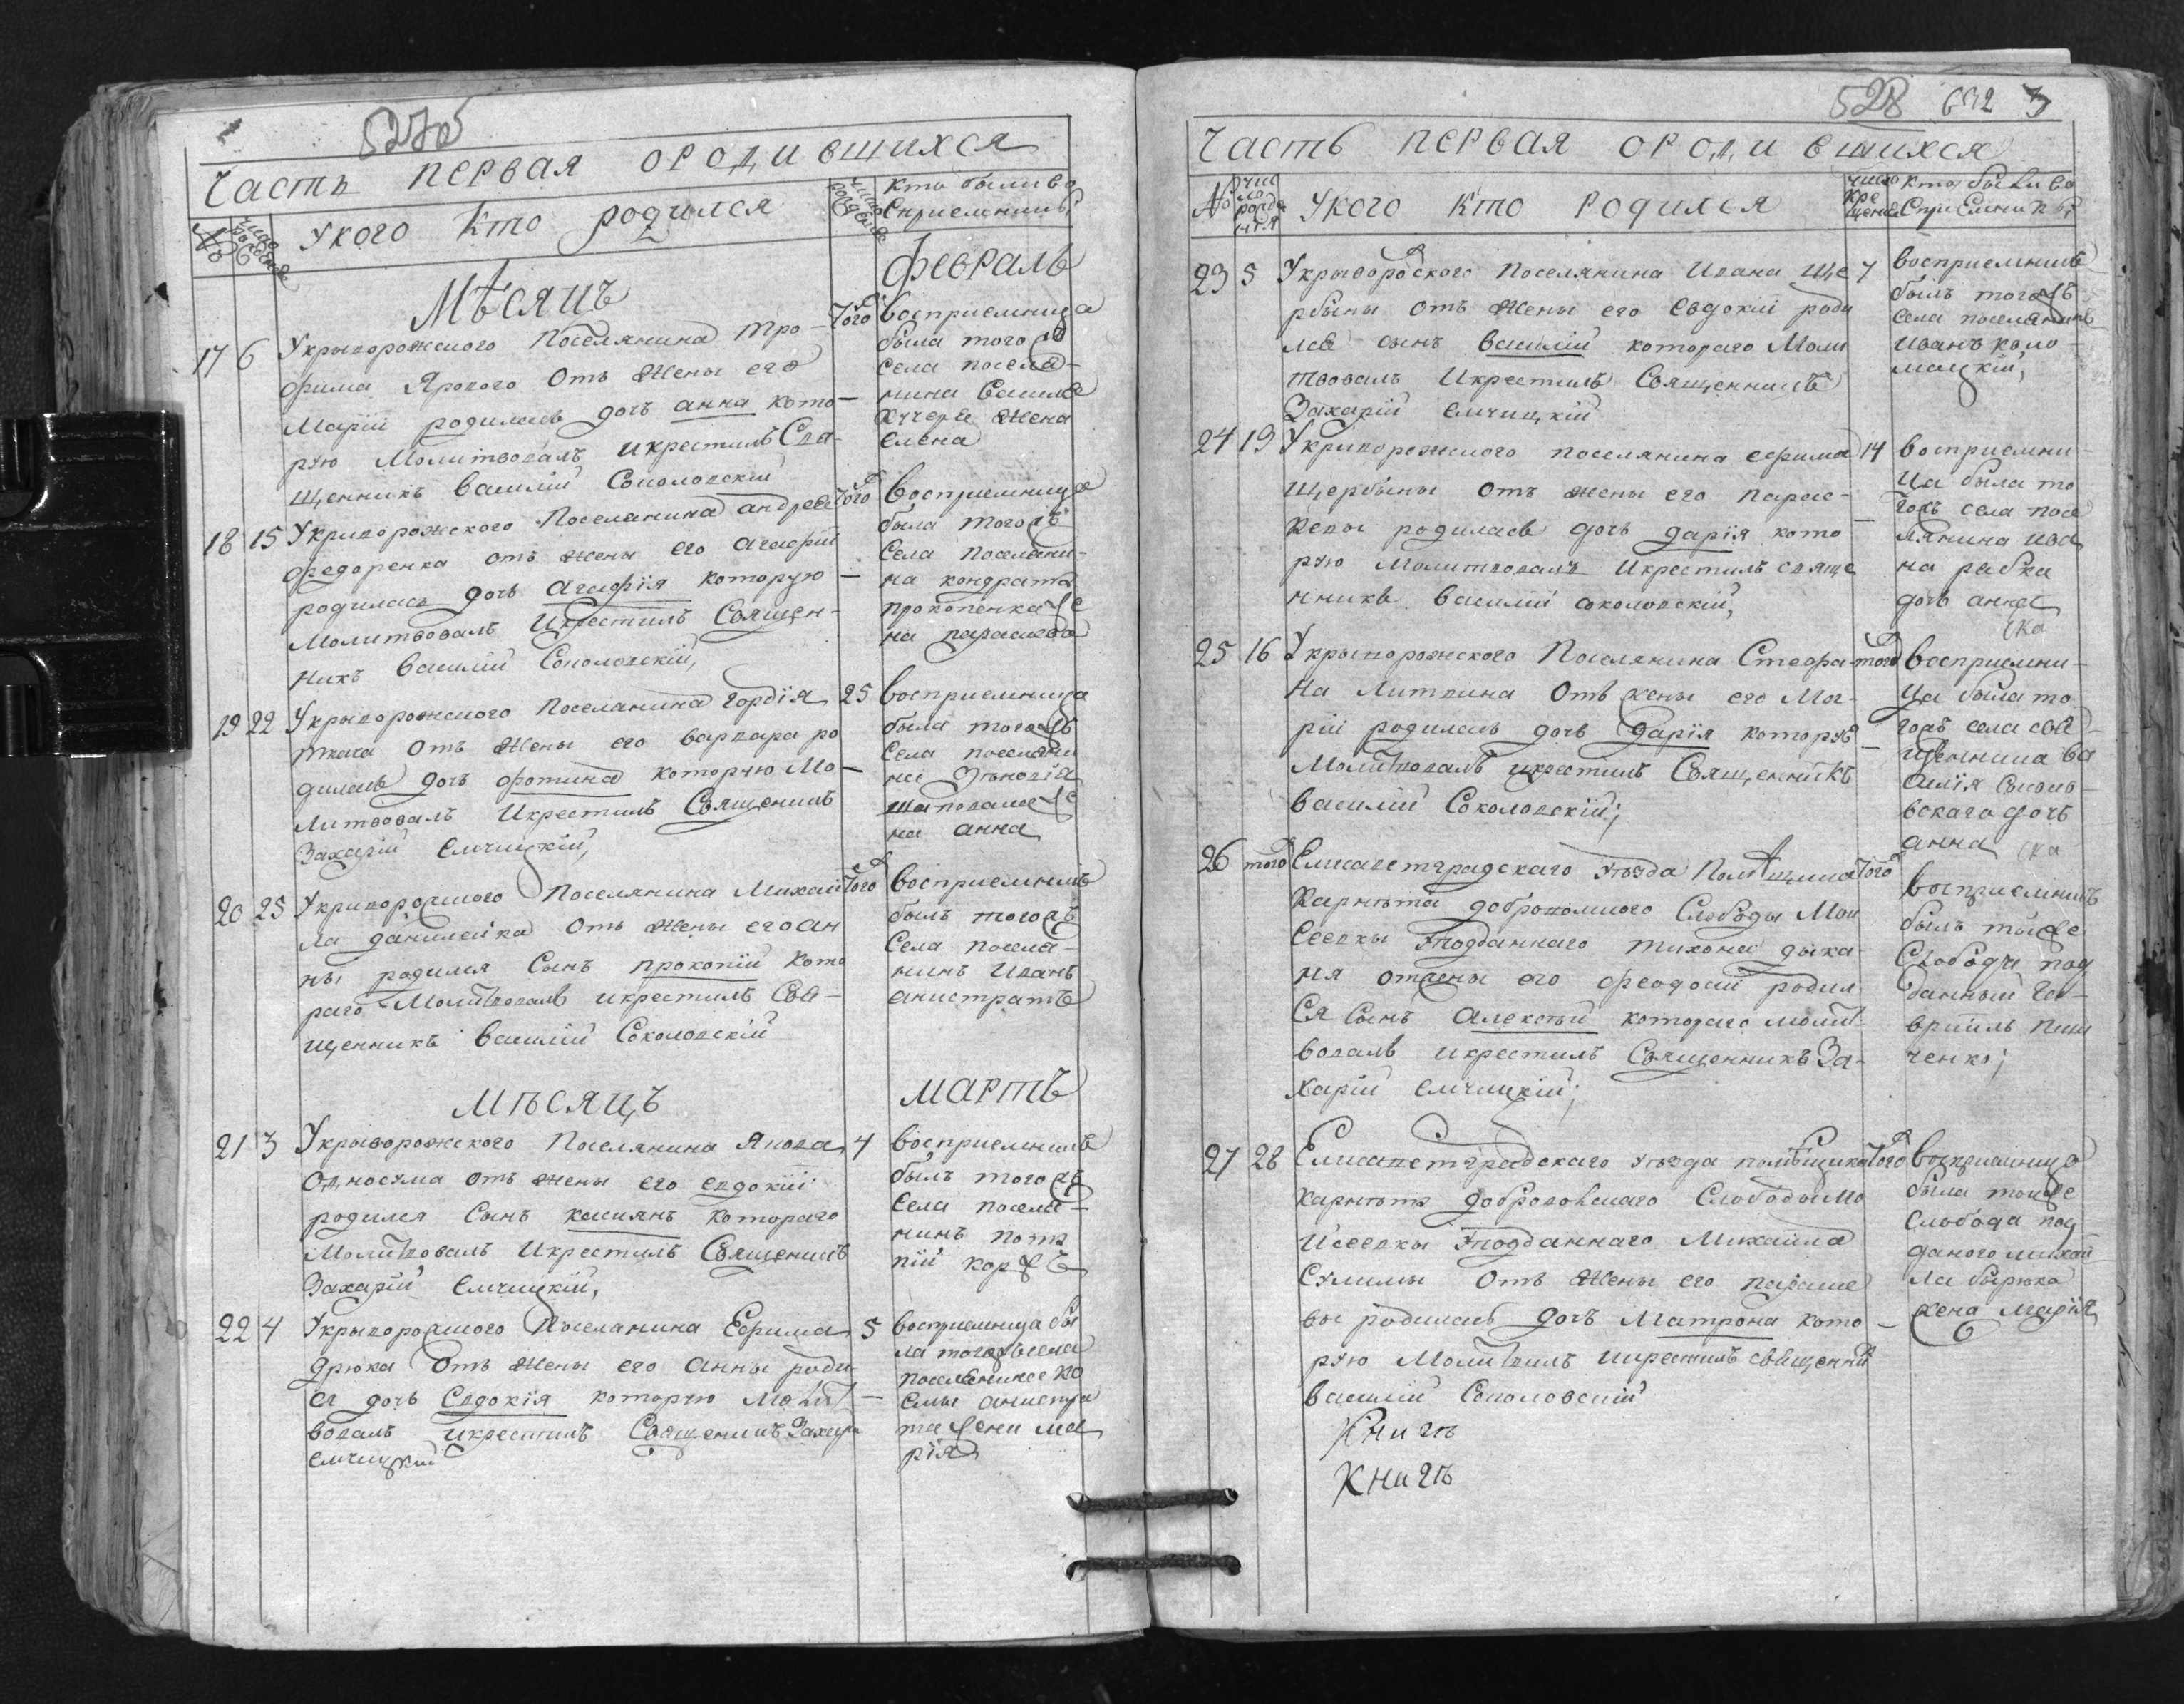 527об
Часть первая ородившихся
№
число рождения
Укого кто родился
Кто были во
сприемники
Мѣсяцъ
февраль
17 6 Укриворожского Поселянина Тро-
фима Ярового Отъ Жены его
Марїи родилась дочь анна кото-
рую Молитвовалъ икрестилъ Свя-
щенникъ василїй Соколовскїй
Того
восприемница
была тогожъ
села поселя-
нина
Жена
елена
18 15 Укриворожского Поселянина андрея
федоренка отъ жены его агафїи
родилась дочь агафїя которую
Молитвовалъ Икрестилъ Священ-
никъ василїй Соколовскїй,
Того
восприемница
была тогожъ
Села поселяни-
на кондрата
прокопенка же
на параскева
19 22 Укриворожского Поселянина гордїя
ткача Отъ Жены его варвара ро
дилась дочь фотина которую Мо-
литвовалъ Икрестилъ Священникъ
Захарїй Емчицкїй,
25
восприемница
была тогожъ
Села поселяни
на Зѣновїя
шаповала же
на анна
20 25 Укриворожского Поселянина Михаи
ла данилейка Отъ Жены его ан
ны родился Сынъ прокопїй Кото
раго Молитвовалъ икрестилъ Свя-
щенникъ василїй Соколовскїй
Того
восприемникъ
былъ тогожъ
Села поселя-
нинъ Иванъ
анистратъ
мѣсяцъ
мартъ
21 3 Укриворожского Поселянина Якова
Односума отъ жены его евдокїи
родился Сынъ касиянъ Котораго
Молитвовалъ Икрестилъ Священникъ
Захарїй Емчицкїй,
4
восприемникъ
былъ тогожъ
Села поселя-
нинъ пота
пїй коржъ
22 4 Укриворожского Поселянина Ефима
дрюка Отъ жены его анны роди
ся дочь Евдокїя которую Молит-
вовалъ икрестилъ Священникъ Захари
емчицкїй
5
восприемница бы
ла тогожъ села
поселянина Ко
смы анистра
та жена ма
рїя
528 692 3
Часть первая ородившихся
№
число рожде нїя
Укого Кто Родился
число Кре щенїя
Кто были во
Сприемники
23 5 Укриворожского Поселянина Ивана Ще
рбыны отъ Жены его Евдокїи роди
лся сынъ василїй котораго Моли
твовалъ Икрестилъ Священникъ
Захарїй емчицкїй
7
восприемникъ
былъ тогожъ
села поселянинъ
Иванъ коло-
мацкїй,
24 13 Укриворожского поселянина ефима
Щербины отъ жены его Парас-
кевы родилась дочь дарїя кото
рую Молитвовалъ Икрестилъ свяще
нникъ василїй соколовскїй,
14
восприемни-
ца была то
гожъ села посе
лянина ива
на рабка
дочь анна
25 16 Укриворожского Поселянина Стефа-
на Литвина отъ жены его Ма-
рїи родилась дочь дарїя которую
Молитвовалъ икрестилъ Священникъ
василїй Соколовскїй;
того
восприемни-
ца была то
гожъ села свя-
щенника ва
силїя Соколо-
вскаго дочь
анна
26 того Елисаветградскаго уѣзда Помѣщика
Карнѣта доброволского Слободы Мои
сеевки Уподданнаго тихона дыка-
ня отжены его феодосїи родил
ся Сынъ алексѣй котораго молит
вовалъ икрестилъ Священникъ За-
харїй емчицкїй;
Того
восприемникъ
былъ тоеже
Слободы под
данный га-
врїилъ пили
ченко;
27 28 Елисаветградскаго уѣзда помѣщика
Карнѣта доброволскаго Слободы Мо
исеевки Уподданнаго Михаила
Сулимы Отъ Жены его параске
вы родилась дочь Матрона кото-
рую Молитвилъ икрестилъ священни
василїй Соколовскїй
Того
восприемница
была тоеже
слобода под
даного михаи
ла бырюка
жена марїя
Книгъ
Книгъ